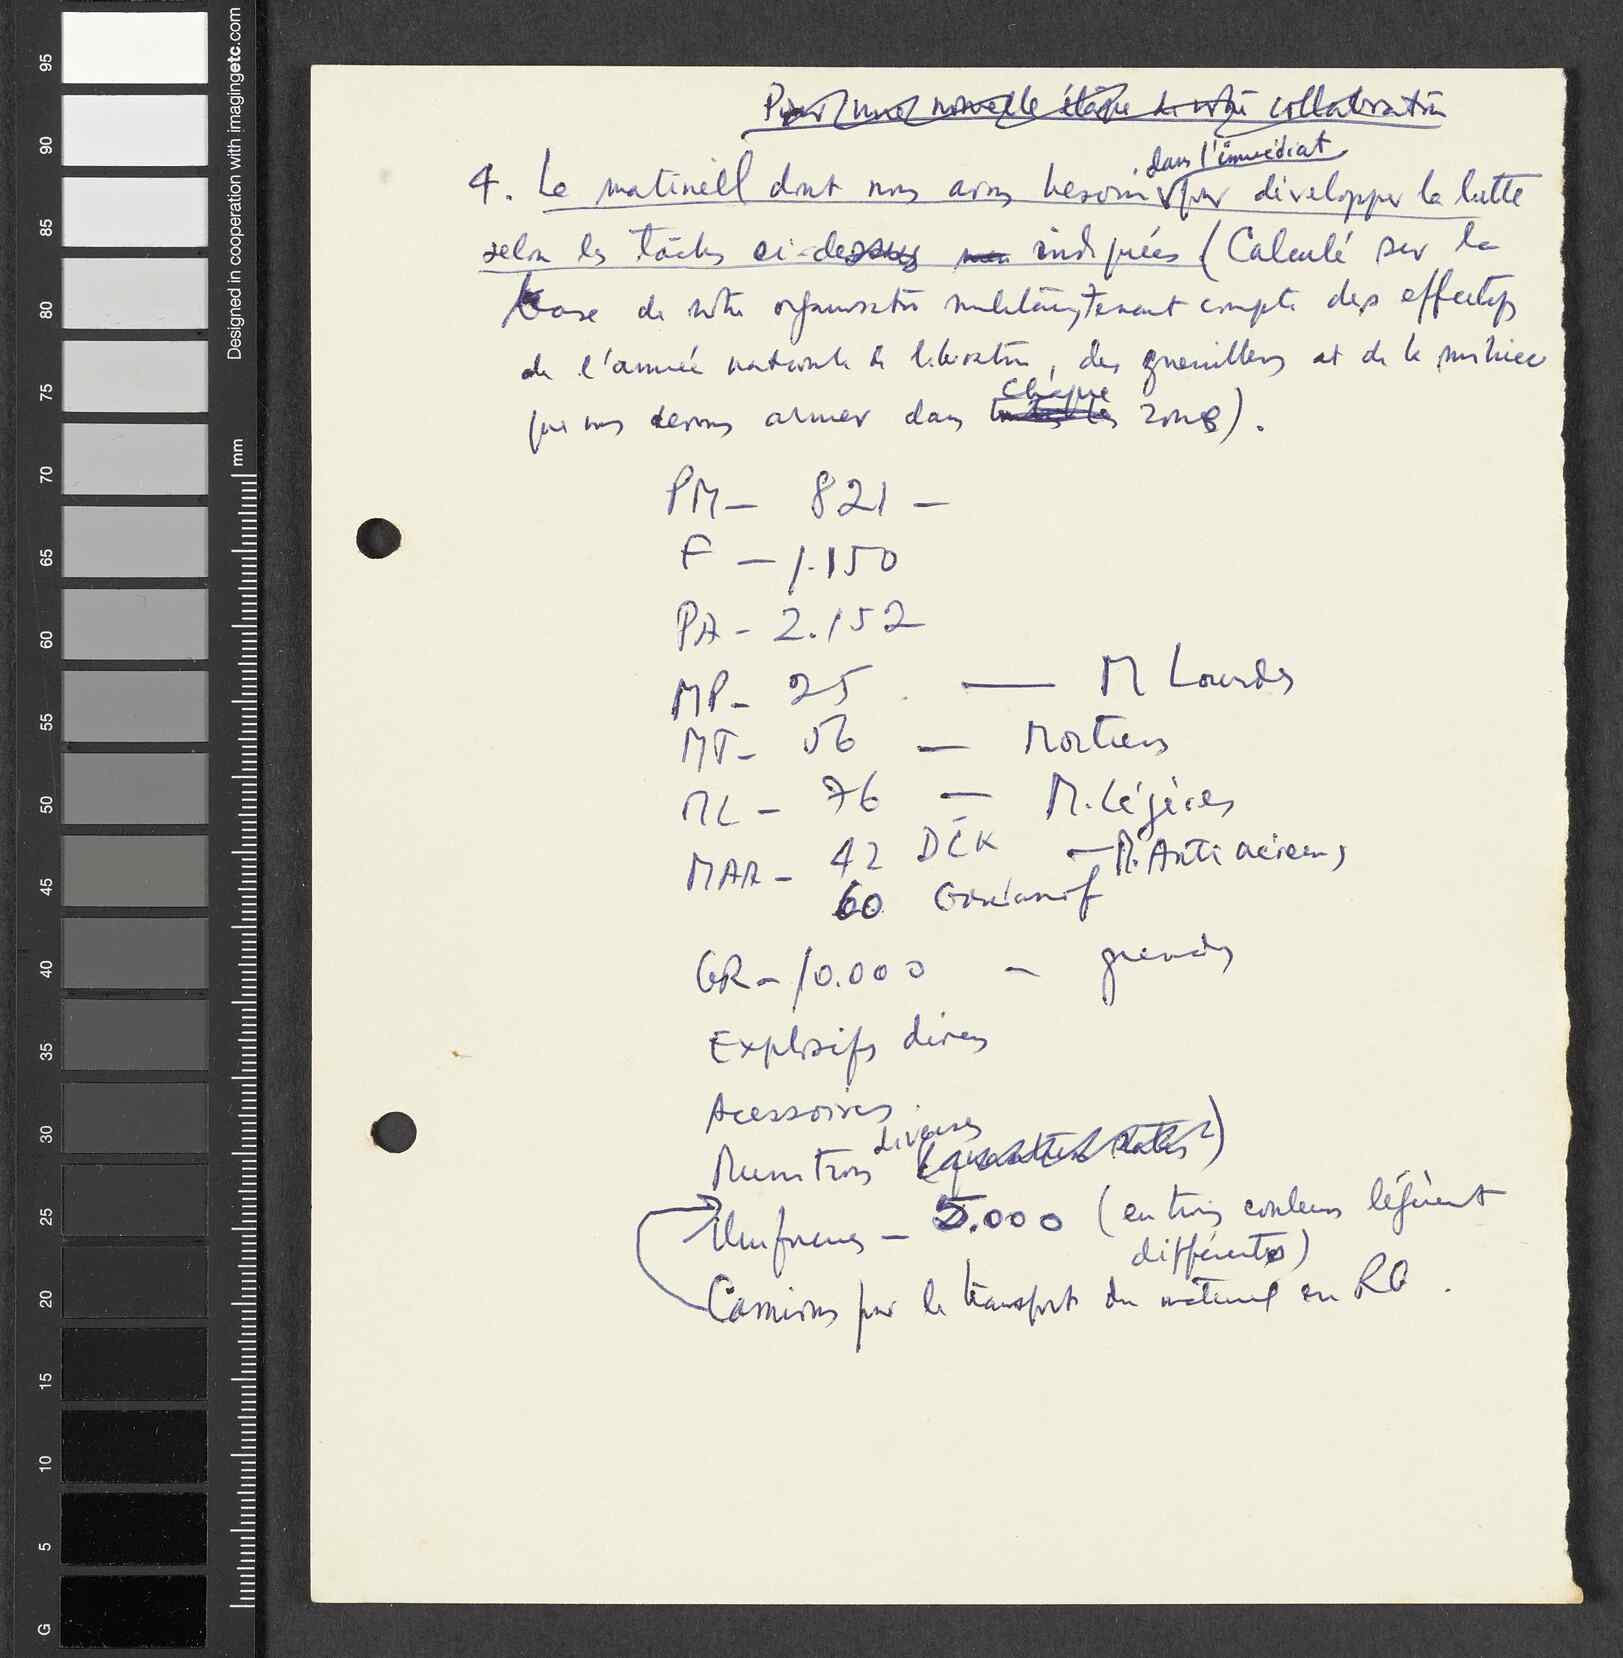 Designed in cooperation with imagingetc.com
mm
95
90
85
80
75
70
65
60
55
50
45
40
35
30
25
20
15
10
5
G
Pour une nouvelle étape de notre collaboration
dans l'immédiat
4. Le matériell dont nous avons besoin pour développer la lutte
selon les tâches ci-dessus indiquées (Calculé sur la
base de notre organisation militaire, tenant compte des effectifs
de l'armée nationale de libération, des guerrillers et de la milice
chaque
que nous devons armer dans toutes les zones).
PM - 821 -
F - 1.150
PA - 2.152
MP - 25 — M Lourdes
MT - 56 — Mortiers
ML - 76 — M. Légères
MAA - 42 DCK — M. Anti aériens
60 Goriunof
GR - 10.000 - grenades
Explosifs divers
Acessoires
diverses
Munitions
Uniformes - 5.000 (en trois couleurs légèrent
différents)
Camions pour le transport du matériel en RG.